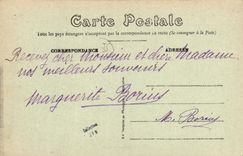 Carte Postale
Tous les pays étrangers n'acceptent pas la correspondance au recto (Se renseigner à la Poste)
CORRESPONDANCE ADRESSE
Recevez cher Monsieur et chère Madame
nos meilleurs souvenirs
Marguerite Borius
M. Borius